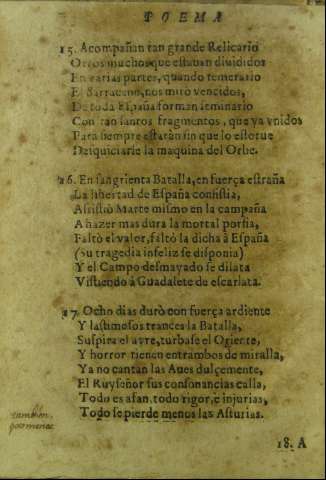 POEMA
15. Acompañan tan grande Relicario
Otros muchos que estauan diuididos
En varias partes, quando temerario
El Sarraceno, nos mirò vencidos,
De toda España forman seminario
Con tan santos fragmentos, que ya vnidos
Para siempre estaràn sin que lo estorue
Desquiciarse la maquina del Orbe.
26. En sangrienta Batalla, en fuerça estraña
La libertad de España consistia,
Assistiò Marte mismo en la campaña
A hazer mas dura la mortal porfia,
Faltò el valor, faltò la dicha à España
(Su tragedia infeliz se disponia)
Y el Campo desmayado se dilata
Vistiendo à Guadalete de escarlata.
27. Ocho dias durò con fuerça ardiente
Y lastimosos trances la Batalla,
Suspira el ayre, turbase el Oriente,
Y horror tienen entrambos de miralla,
Ya no cantan las Aues dulçemente,
El Ruyseñor sus consonancias calla,
Todo es afan, todo rigor, è injurias,
Todo se pierde menos las Asturias.
tambien
18. A